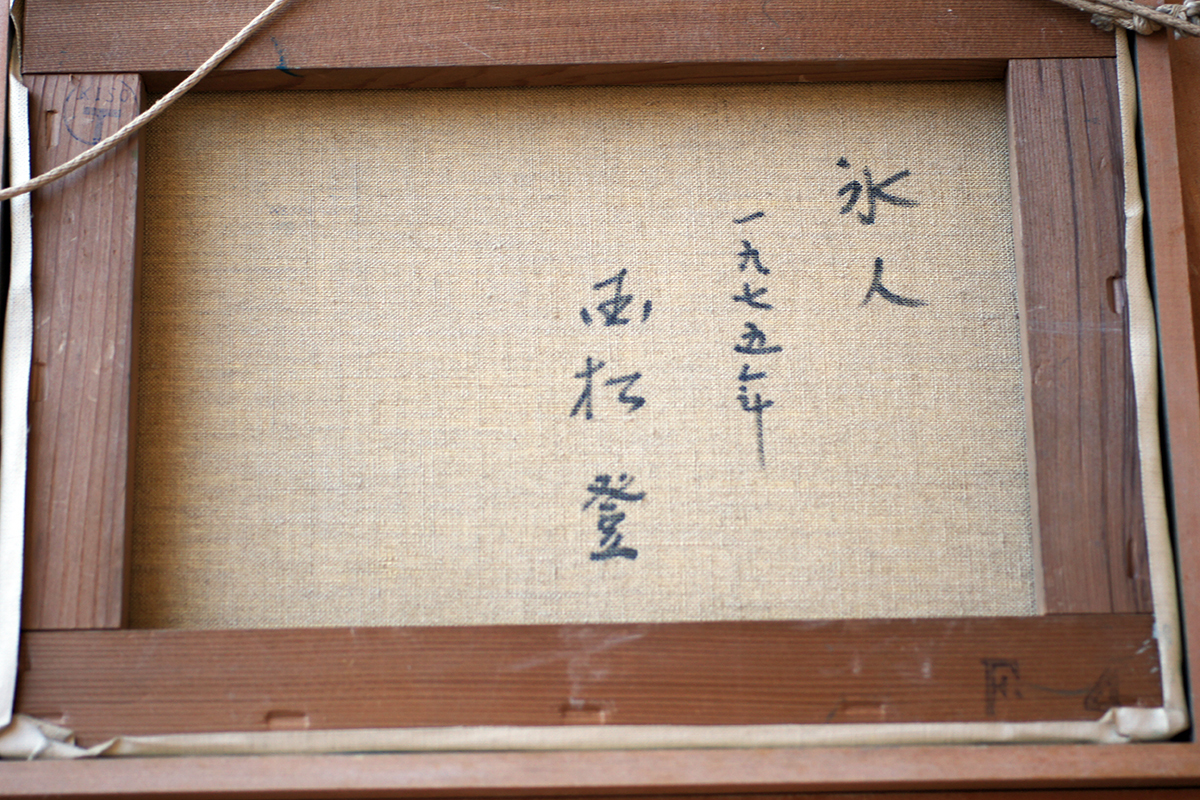 氷人
一九七五年
国松登
KISO
F.4